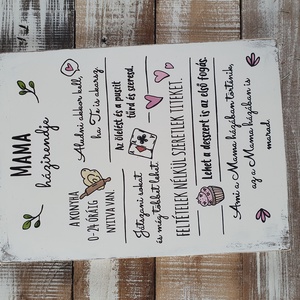 MAMA
házirendje
A KONYHA
0-24 ÓRÁIG
NYITVA VAN.
Aludni akkor kell,
ha Te is akarsz
Az ölelést és a puszit
tűrd és szeresd.
Játszani sokat
és még többet lehet
FELTÉTELEK NÉLKÜL SZERETLEK TITEKET.
Lehet a desszert is az első fogás.
Ami a Mama házában történik,
az a Mama házában is
marad